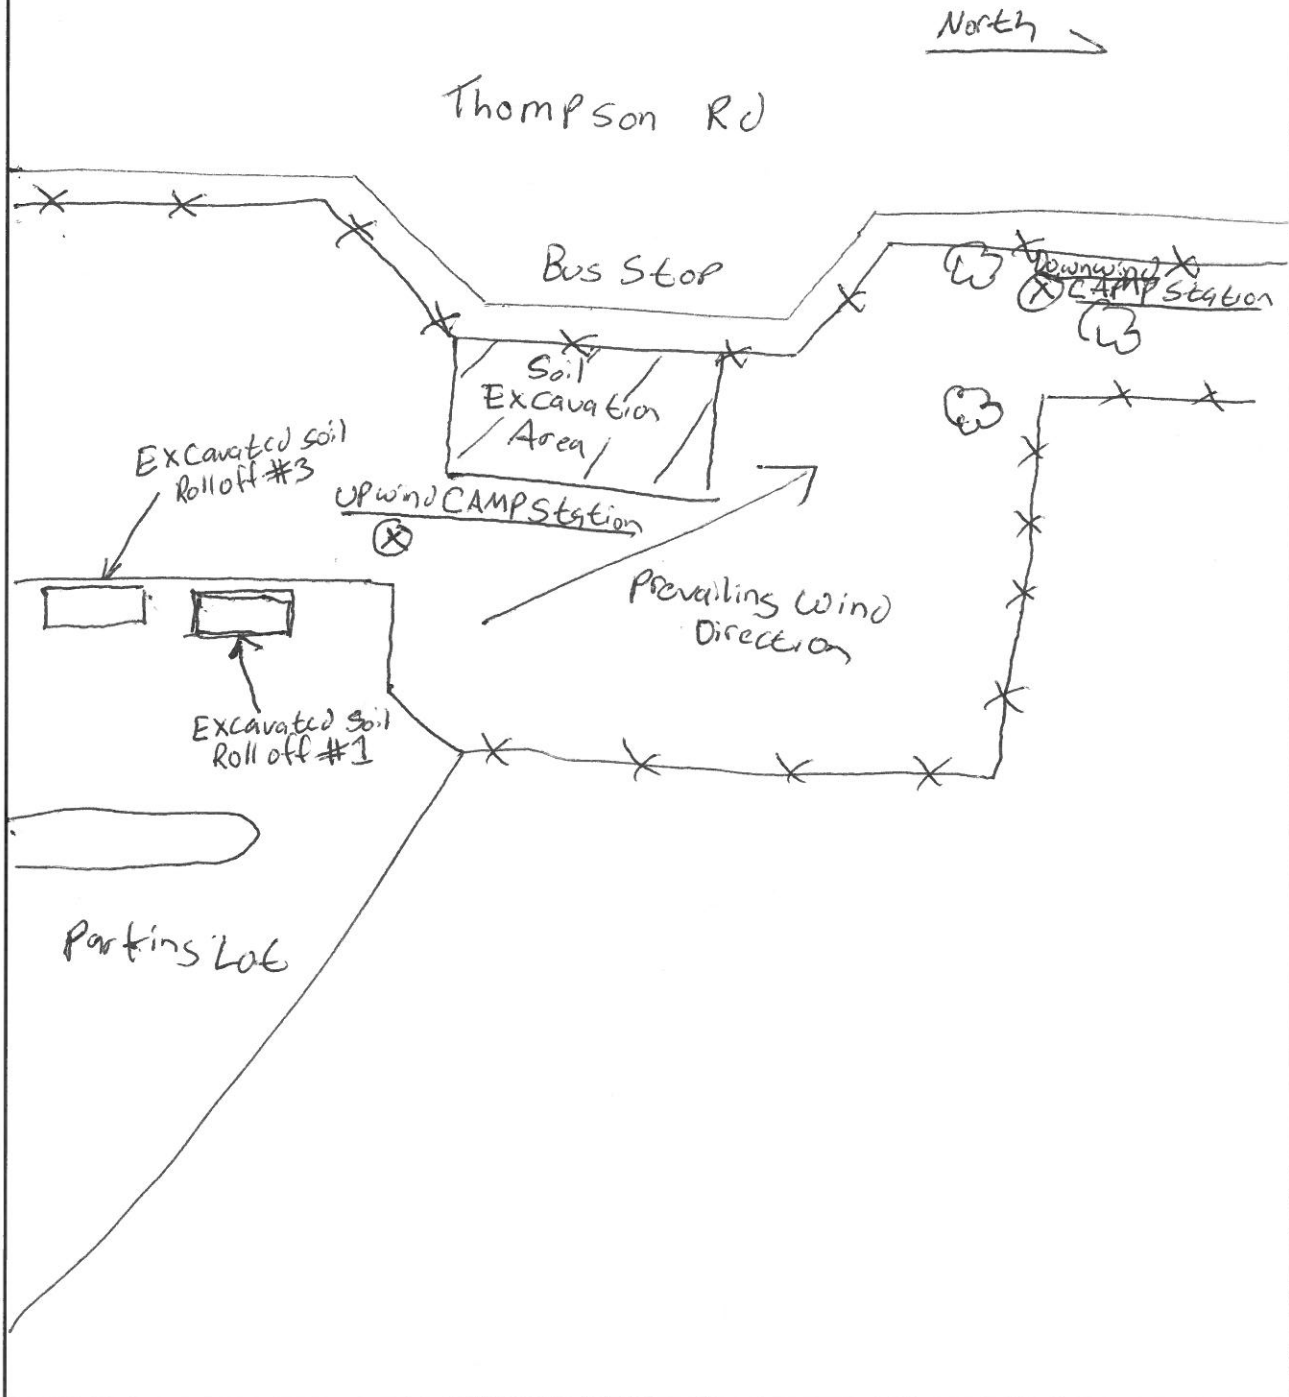 North
Thompson Rd
Bus Stop
Downwind
CAMP Station
Soil
Excavation
Area
Excavated soil
Roll off #3
Upwind CAMP Station
Prevailing Wind
Direction
Excavated Soil
Roll off #1
Parking Lot